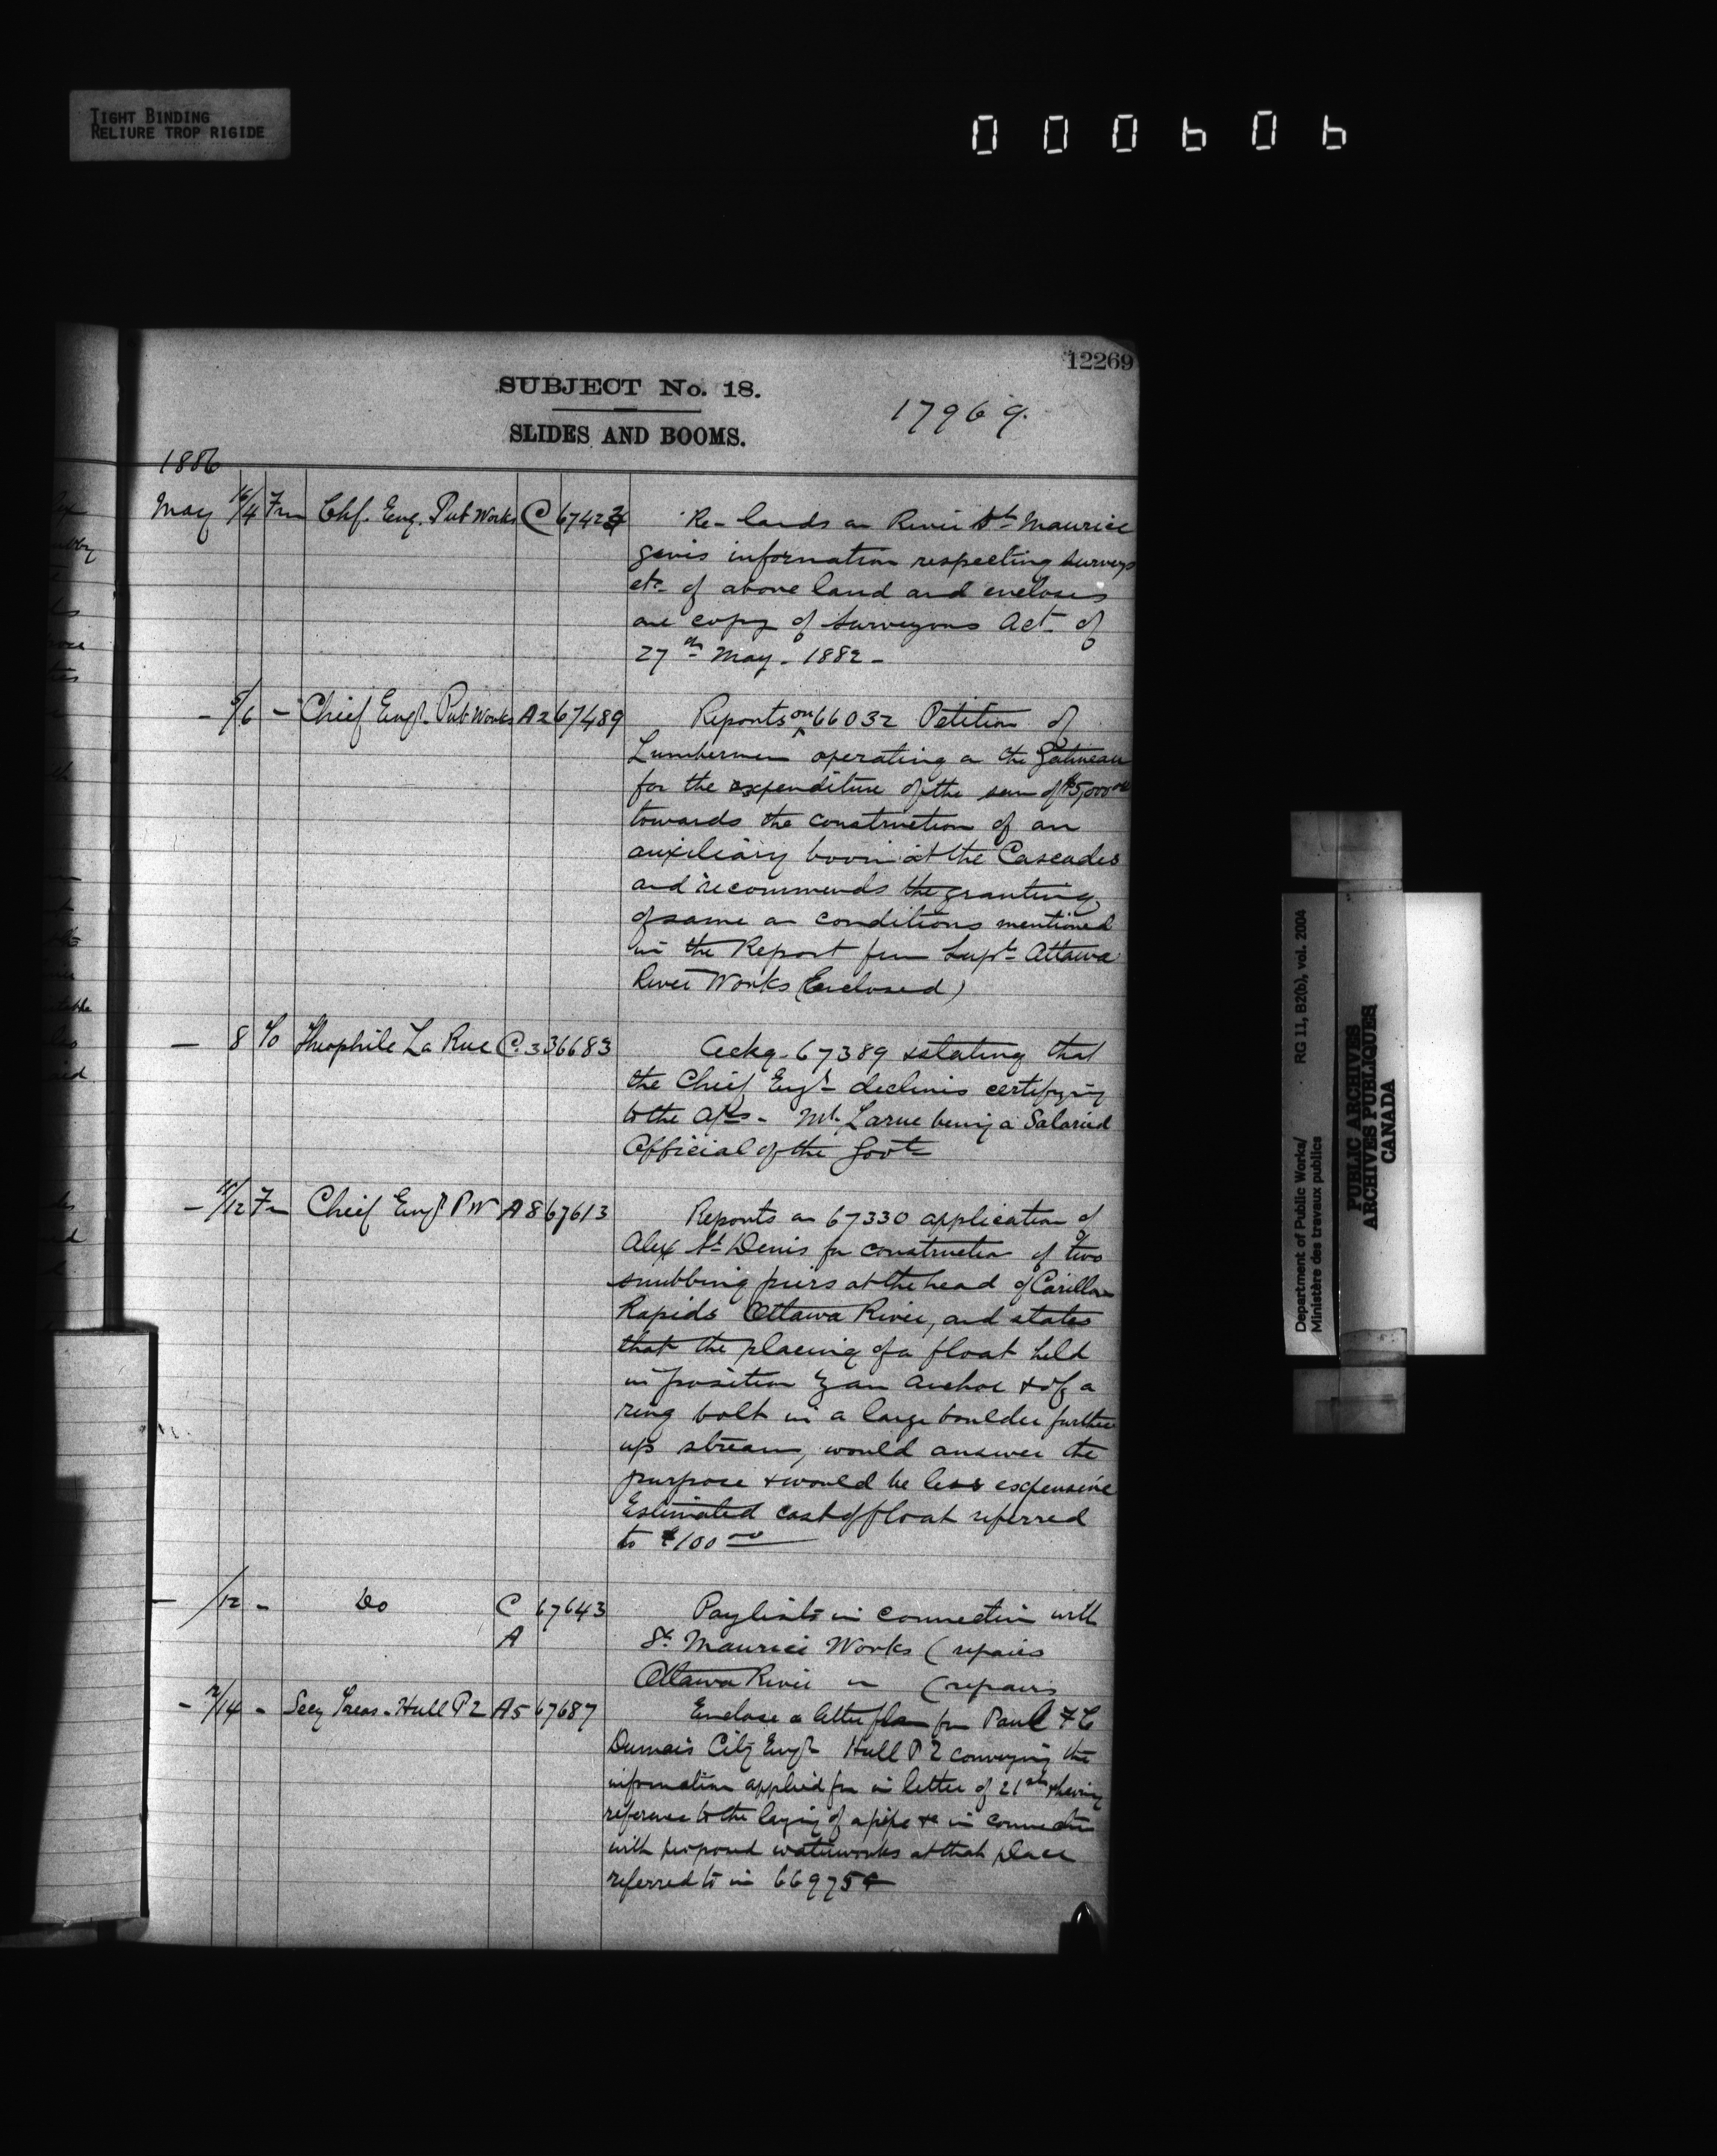 TIGHT BINDING
RELIURE TROP RIGIDE
000606
12269
SUBJECT No. 18.
17969.
SLIDES AND BOOMS.
1886
May 4 Fm Chf. Eng. Pub Works C 67423 Re- lands on River St. Maurice
gives information respecting surveys
etc. of above land and encloses
one copy of Surveyors Act of
27th May. 1882 -
- 5/6 - Chief Engr. Pub Works A2 67489 Reports on 66032 Petition of
Lumbermen operating on the Gatineau
for the expenditure of the sum of $5,000.00
towards the construction of an
auxiliary boom at the Cascades
and recommends the granting
of same on conditions mentioned
in the Report from Supt. Ottawa
River Works (Enclosed)
- 8 To Theophile La Rue C.3 36683 Ackg. 67389 & stating that
the Chief Engr. declines certifying
to the a/cs - Mr. Larue being a Salaried
Official of the Govt.
- 11/12 Fm Chief Engr. P W A8 67613 Reports on 67330 application of
Alex St. Denis for construction of two
snubbing piers at the head of Carillon
Rapids Ottawa River, and states
that the placing of a float held
in position by an anchor & of a
ring bolt in a large boulder further
up stream, would answer the
purpose & would be less expensive
Estimated cost of float referred
to $100.00
- /12 - Do C 67643 Paylists in connection with
A St. Maurice Works (repairs
Ottawa River in (repairs
- 12/14 - Secy Treas. Hull P2 A5 67687 Enclose a letter from Paul T C
Dumais City Engr. Hull P2 conveying the
information applied for in letter of 21st having
reference to the laying of a pipe &c in connection
with proposed waterworks at that place
referred to in 66975
Department of Public Works/ RG 11, B2(b), vol. 2004
Ministère des travaux publics
PUBLIC ARCHIVES
ARCHIVES PUBLIQUES
CANADA